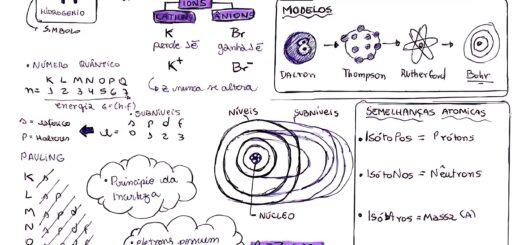 HIDROGÊNIO
SÍMBOLO
IONS
CÁTIONS
ÂNIONS
K
Br
perde 1é
ganha 1é
K+
Br-
Z nunca se altera
MODELOS
DALTON
THOMPSON
RUTHERFORD
BOHR
• NÚMERO QUÂNTICO
K L M N O P Q
n= 1 2 3 4 5 6 7
energia
• SUBNÍVEIS
s p d f
l = 0 1 2 3
s = esférico
P = Halteres
NÍVEIS
SUBNÍVEIS
NÚCLEO
SEMELHANÇAS ATOMICAS
• ISÓTOPOS = Prótons
• ISÓTONOS = Nêutrons
• ISÓBAROS = MASSA (A)
PAULING
K s
L s p
M s p d
N s p d f
O
• Princípio da
• elétrons possuem